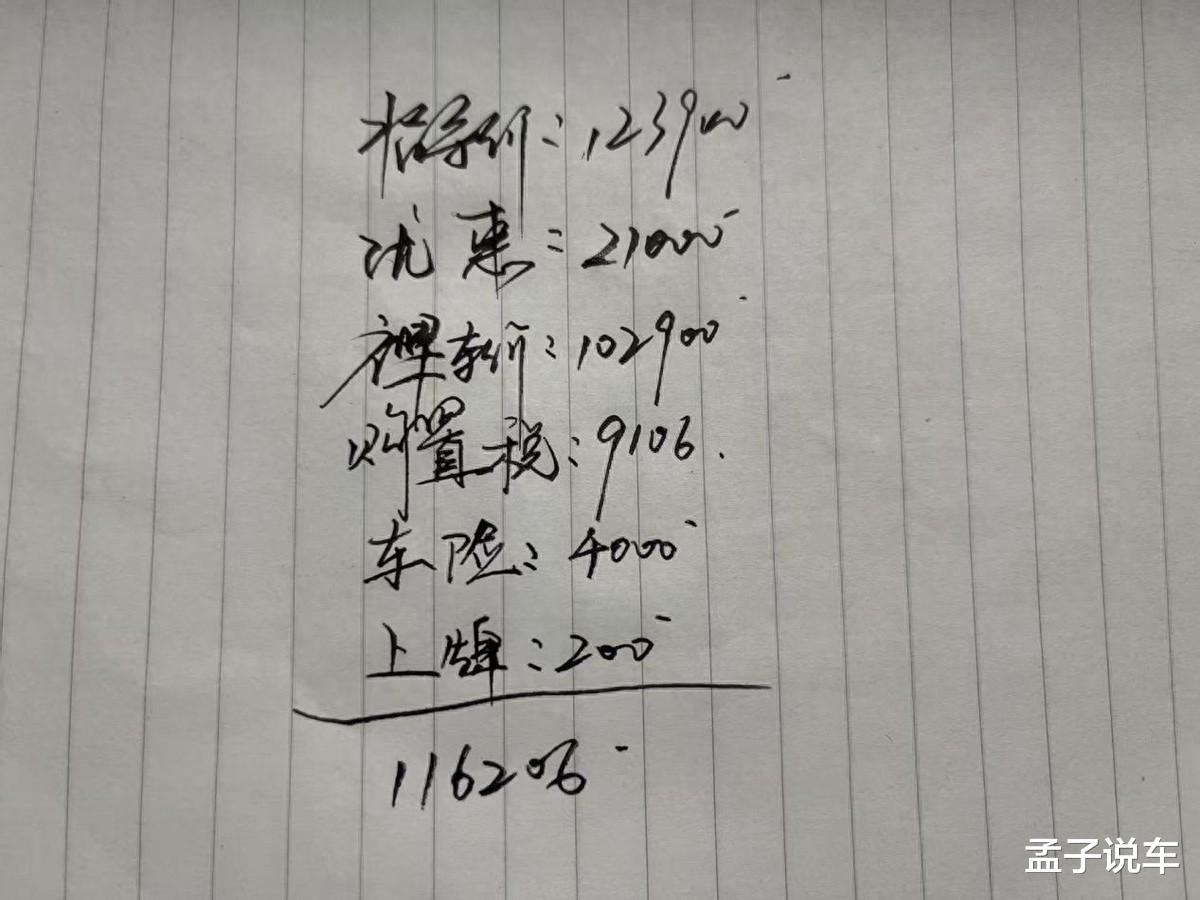 指导价：123900
优惠：21000
裸车价：102900
购置税：9106.
车险：4000
上牌：200
116206
孟子说车